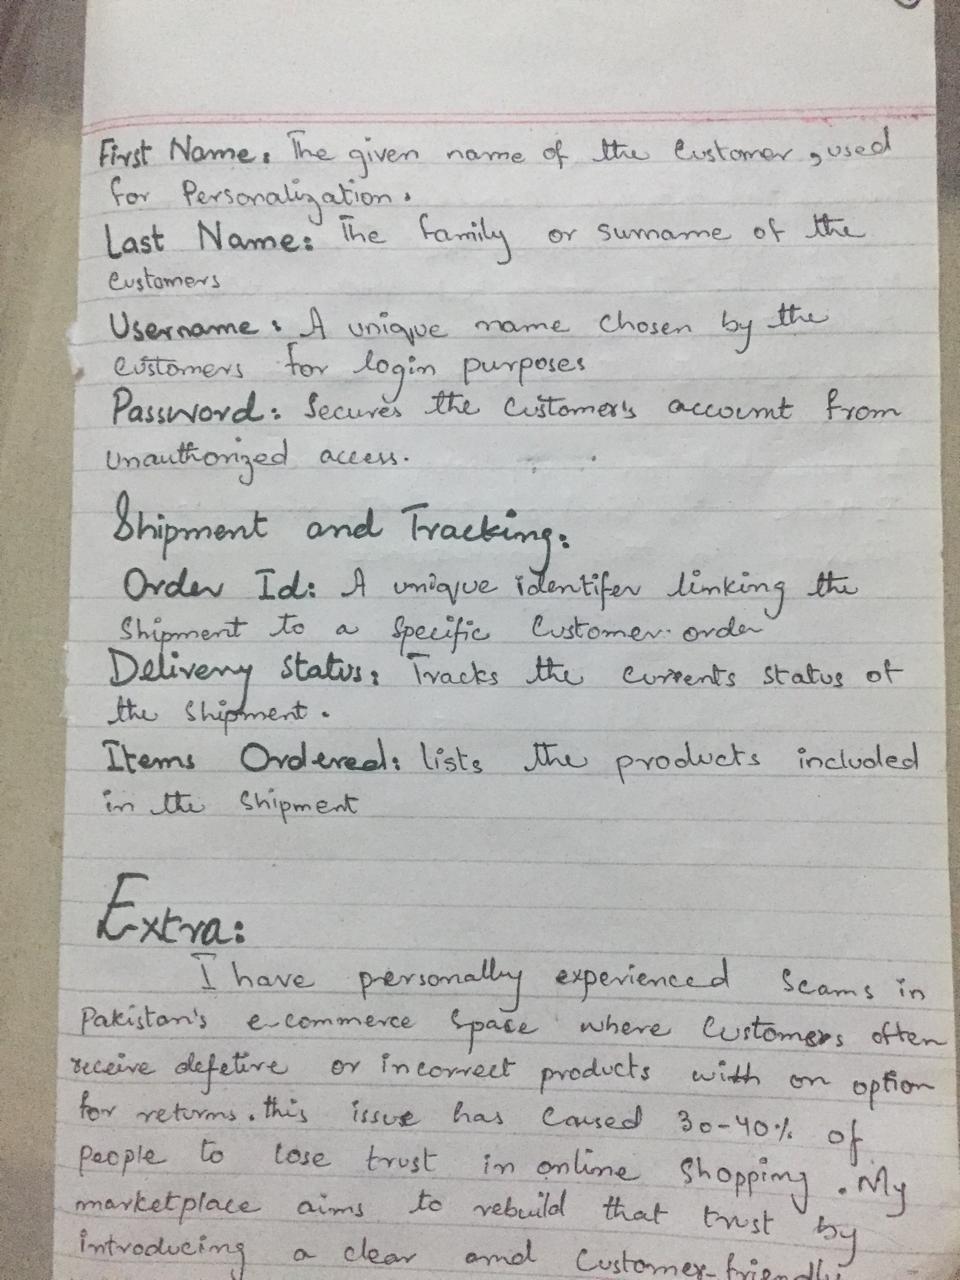 First Name: The given name of the Customer, used
for Personalization.
Last Name: The family or surname of the
Customers
Username: A unique name chosen by the
Customers for login purposes
Password: Secures the Customer's account from
Unauthorized access.
Shipment and Tracking:
Order Id: A unique identifer linking the
Shipment to a Specific Customer order
Delivery Status: Tracks the currents status of
the Shipment.
Items Ordered: lists the products included
in the Shipment
Extra:
I have personally experienced Scams in
Pakistan's e-commerce Space where Customers often
receive defetive or incorrect products with on option
for returns. this issue has Caused 30-40% of
People to lose trust in online Shopping. My
marketplace aims to rebuild that trust by
introducing a clear and Customer-friendly